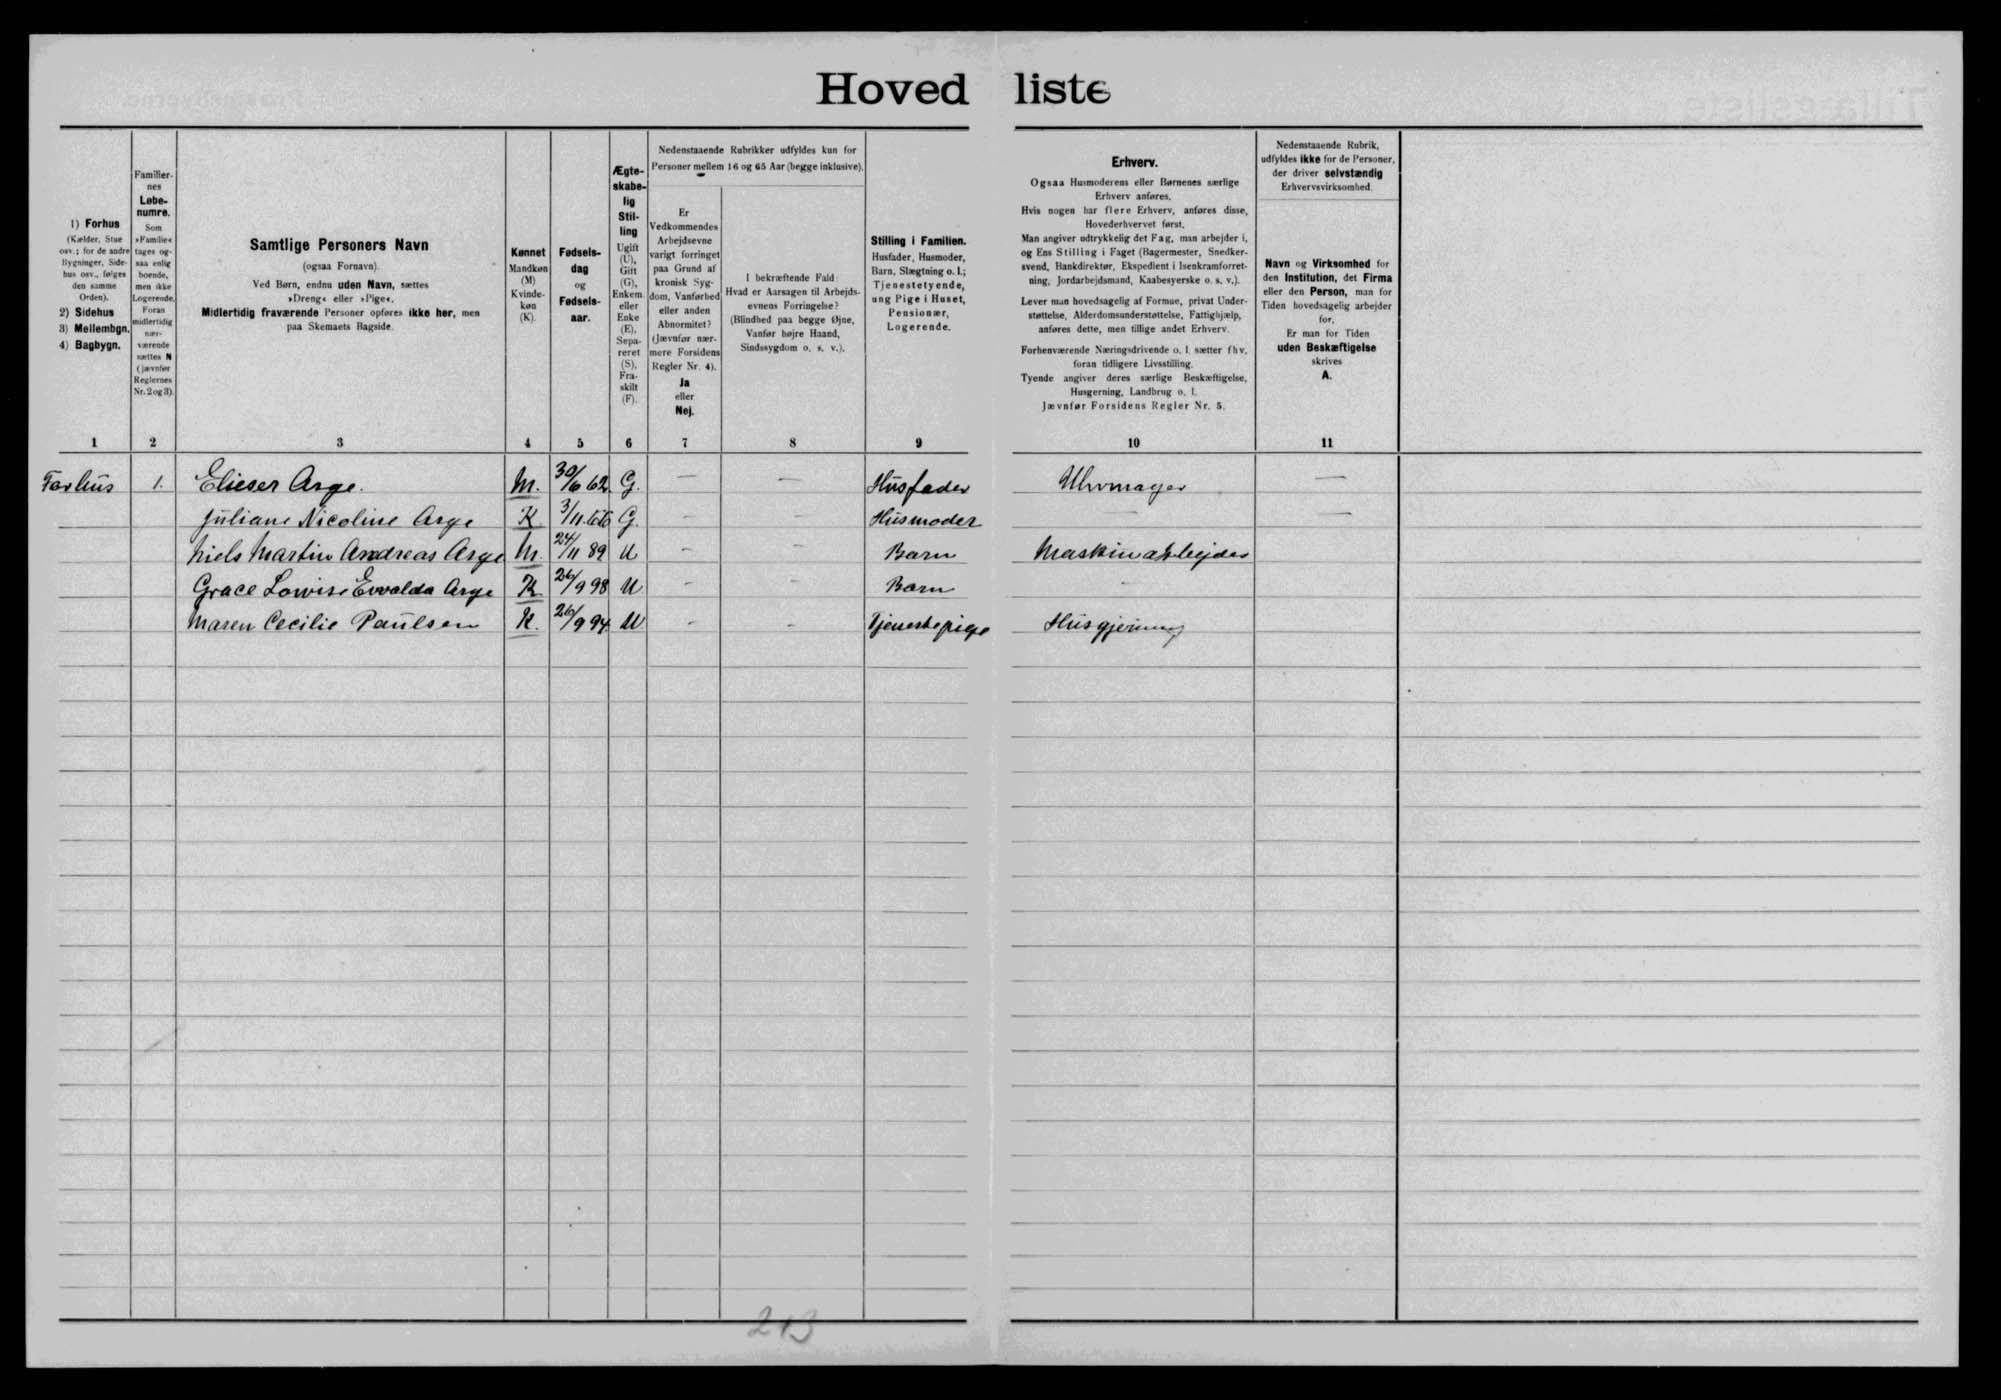 Hoved liste
1) Forhus
(Kælder, Stue
osv.; for de andre
Bygninger, Side-
hus osv., følges
den samme
Orden).
2) Sidehus
3) Mellembgn.
4) Bagbygn.
Familier-
nes
Løbe-
numre.
Som
»Familie«
tages og-
saa enlig
boende,
men ikke
Logerende.
Foran
midlertidig
nær-
værende
sættes N
(jævnfør
Reglernes
Nr. 2 og 3).
Samtlige Personers Navn
(ogsaa Fornavn).
Ved Børn, endnu uden Navn, sættes
»Dreng« eller »Pige«.
Midlertidig fraværende Personer opføres ikke her, men
paa Skemaets Bagside.
Kønnet
Mandkøn
(M)
Kvinde-
køn
(K).
Fødsels-
dag
og
Fødsels-
aar.
Ægte-
skabe-
lig
Stil-
ling
Ugift
(U),
Gift
(G),
Enkem.
eller
Enke
(E),
Sepa-
reret
(S),
Fra-
skilt
(F).
Nedenstaaende Rubrikker udfyldes kun for
Personer mellem 16 og 65 Aar (begge inklusive).
Er
Vedkommendes
Arbejdsevne
varigt forringet
paa Grund af
kronisk Syg-
dom, Vanførhed
eller anden
Abnormitet?
(Jævnfør nær-
mere Forsidens
Regler Nr. 4).
Ja
eller
Nej.
I bekræftende Fald:
Hvad er Aarsagen til Arbejds-
evnens Forringelse?
(Blindhed paa begge Øjne,
Vanfør højre Haand,
Sindssygdom o. s. v.).
Stilling i Familien.
Husfader, Husmoder,
Barn, Slægtning o. l.;
Tjenestetyende,
ung Pige i Huset,
Pensionær,
Logerende.
Erhverv.
Ogsaa Husmoderens eller Børnenes særlige
Erhverv anføres.
Hvis nogen har flere Erhverv, anføres disse,
Hovederhvervet først.
Man angiver udtrykkelig det Fag, man arbejder i,
og Ens Stilling i Faget (Bagermester, Snedker-
svend, Bankdirektør, Ekspedient i Isenkramforret-
ning, Jordarbejdsmand, Kaabesyerske o. s. v.).
Lever man hovedsagelig af Formue, privat Under-
støttelse, Alderdomsunderstøttelse, Fattighjælp,
anføres dette, men tillige andet Erhverv.
Forhenværende Næringsdrivende o. l. sætter fhv.
foran tidligere Livsstilling.
Tyende angiver deres særlige Beskæftigelse,
Husgerning, Landbrug o. l.
Jævnfør Forsidens Regler Nr. 5.
Nedenstaaende Rubrik,
udfyldes ikke for de Personer,
der driver selvstændig
Erhvervsvirksomhed.
Navn og Virksomhed for
den Institution, det Firma
eller den Person, man for
Tiden hovedsagelig arbejder
for.
Er man for Tiden
uden Beskæftigelse
skrives
A.
1 2 3 4 5 6 7 8 9 10 11
Forhus 1. Elieser Arge. M. 30/6 62. G. — — Husfader Uhrmager —
Juliane Nicoline Arge K 3/11.66 G. — — Husmoder — —
Niels Martin Andreas Arge M. 24/11 89 U — — Barn Maskinarbejder
Grace Lowise Evvalda Arge K. 26/9 98 U — — Barn —
Maren Cecilie Paulsen K. 26/9 94. U — — Tjenestepige Husgjerning
213